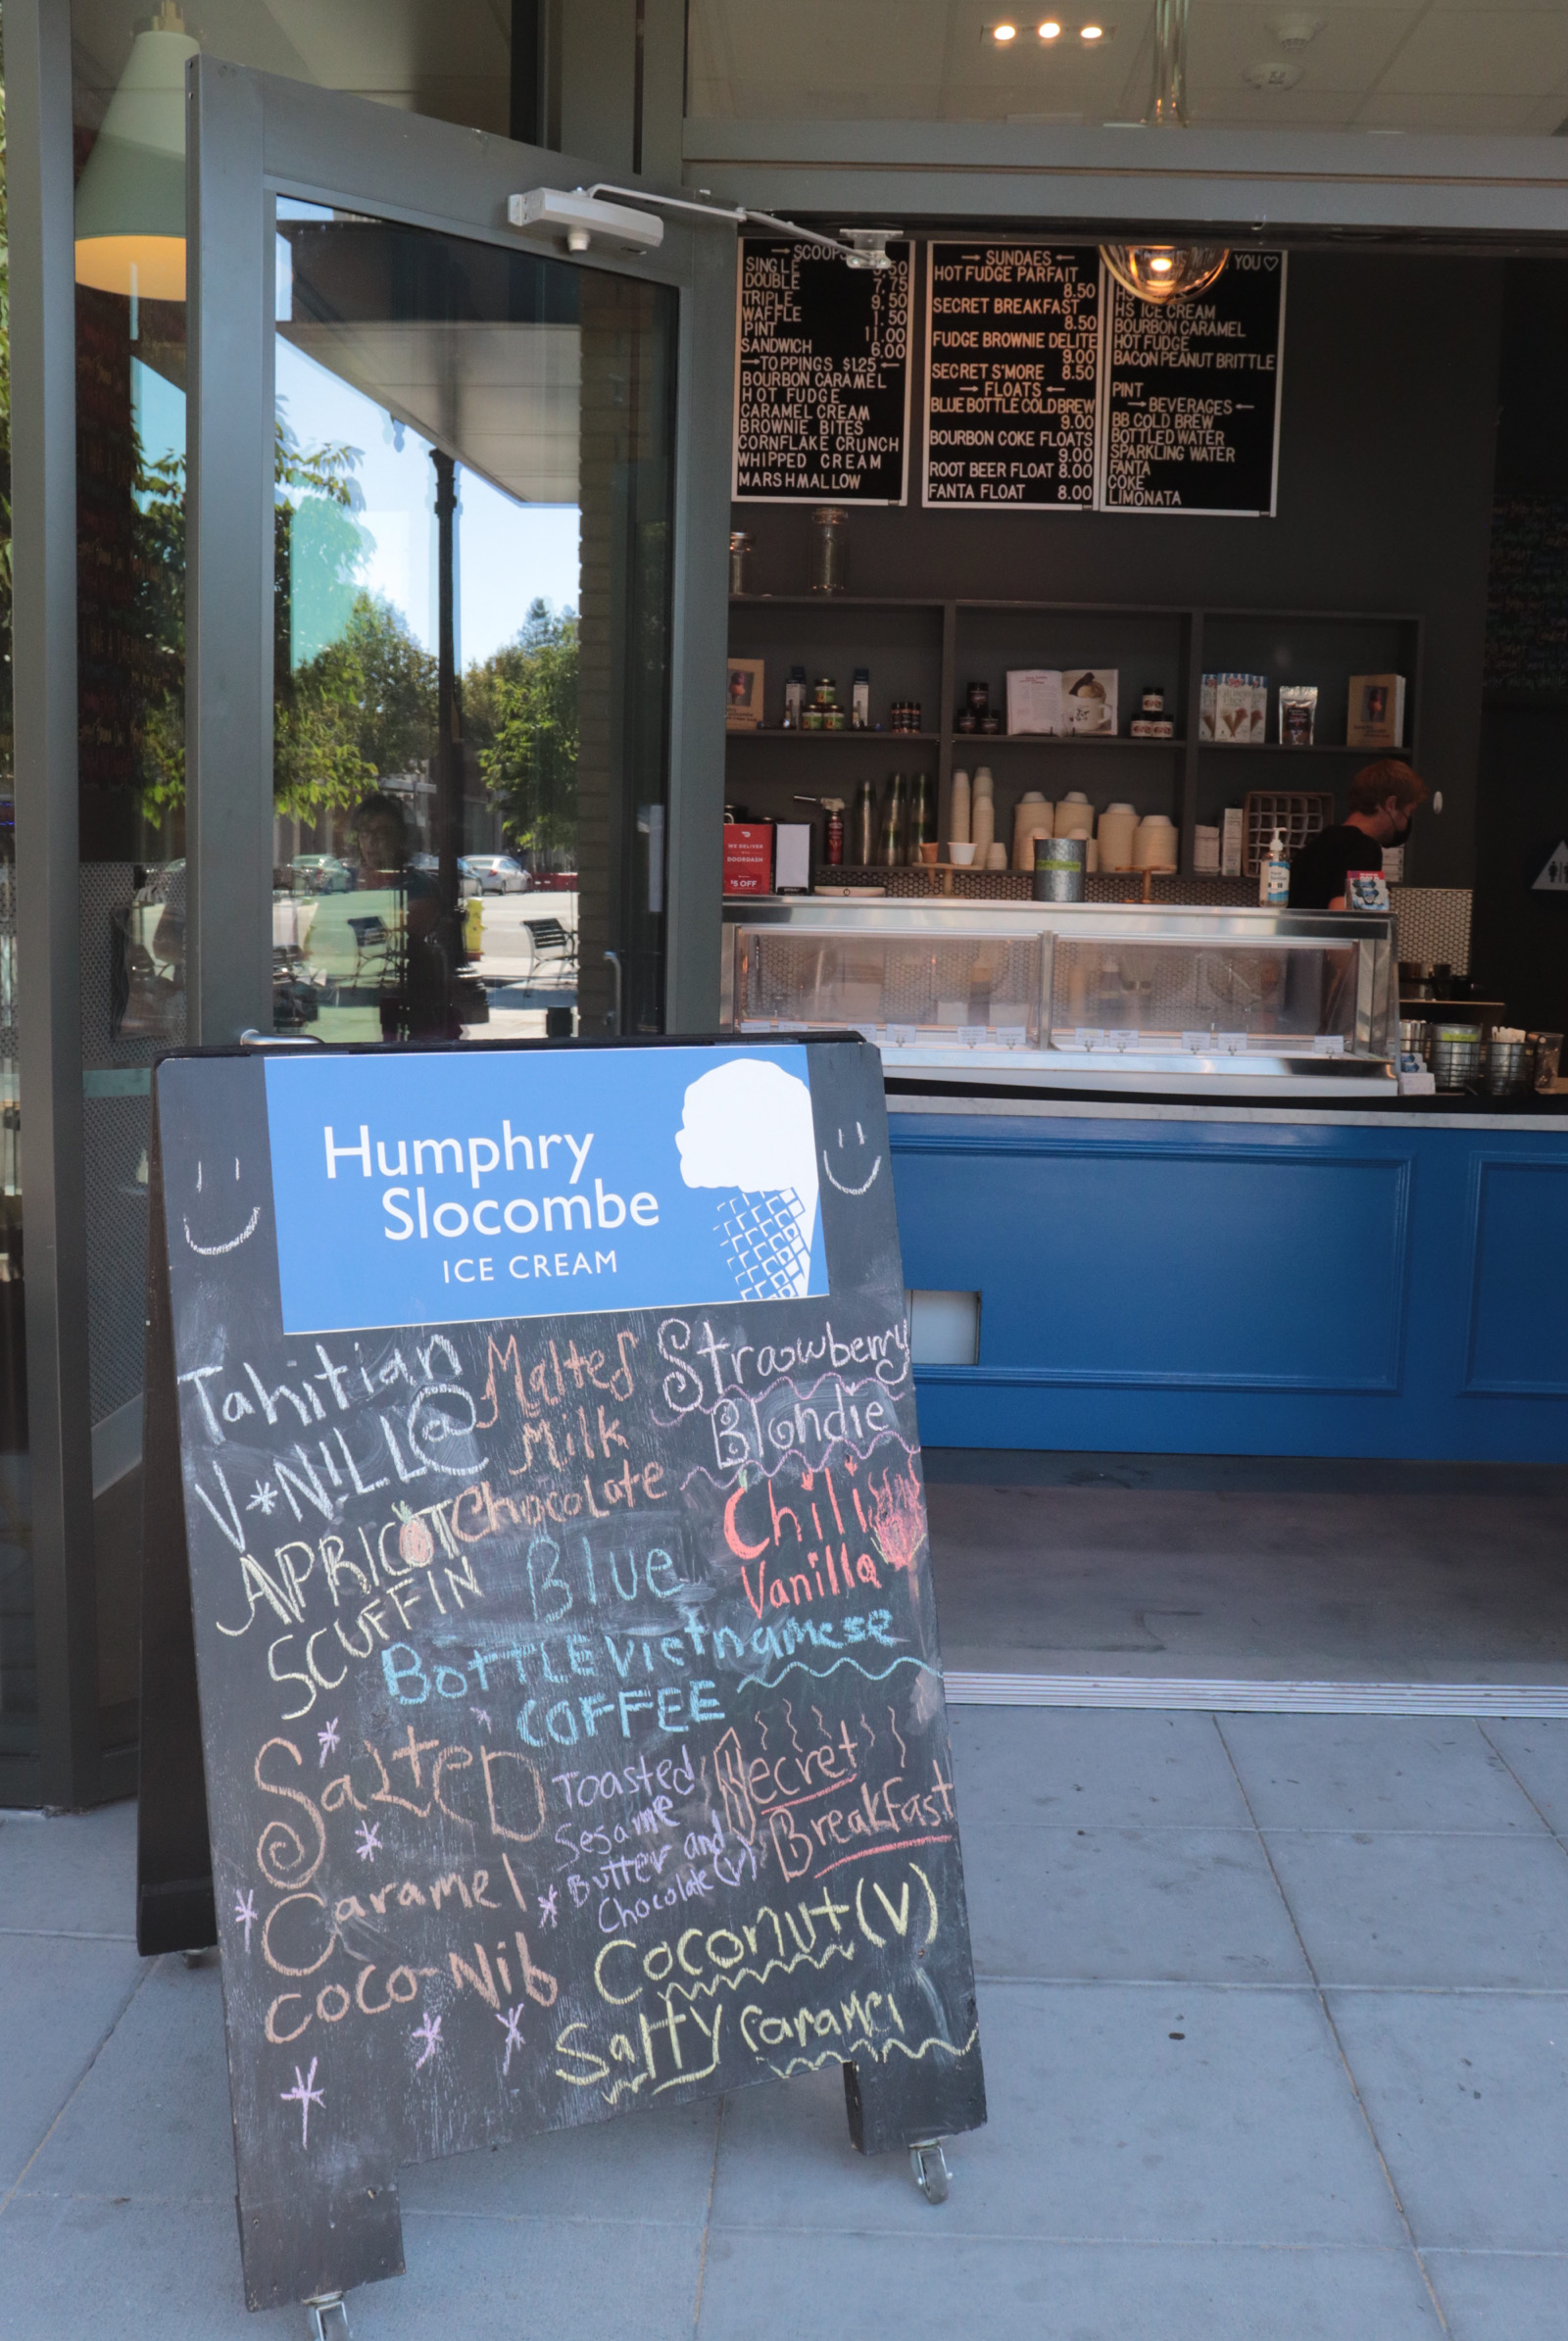 SCOOPS
SINGLE
DOUBLE 7.75
TRIPLE 9.50
WAFFLE 1.50
PINT 11.00
SANDWICH 6.00
TOPPINGS $1.25
BOURBON CARAMEL
HOT FUDGE
CARAMEL CREAM
BROWNIE BITES
CORNFLAKE CRUNCH
WHIPPED CREAM
MARSHMALLOW
SUNDAES
HOT FUDGE PARFAIT
8.50
SECRET BREAKFAST
8.50
FUDGE BROWNIE DELITE
9.00
SECRET S'MORE 8.50
FLOATS
BLUE BOTTLE COLD BREW
9.00
BOURBON COKE FLOATS
9.00
ROOT BEER FLOAT 8.00
FANTA FLOAT 8.00
YOU♡
HS ICE CREAM
BOURBON CARAMEL
HOT FUDGE
BACON PEANUT BRITTLE
PINT
BEVERAGES
BB COLD BREW
BOTTLED WATER
SPARKLING WATER
FANTA
COKE
LIMONATA
WE DELIVER
DOORDASH
$5 OFF
Humphry
Slocombe
ICE CREAM
Tahitian
V*NILL@
Malted
Milk
Chocolate
Strawberry
Blondie
APRICOT
SCUFFIN
Chili
Vanilla
Blue
BOTTLE Vietnamese
COFFEE
SaLTED
Caramel
COCO-Nib
Toasted
Sesame
Butter and
Chocolate (V)
Secret
Breakfast
Coconut (V)
Salty Caramel